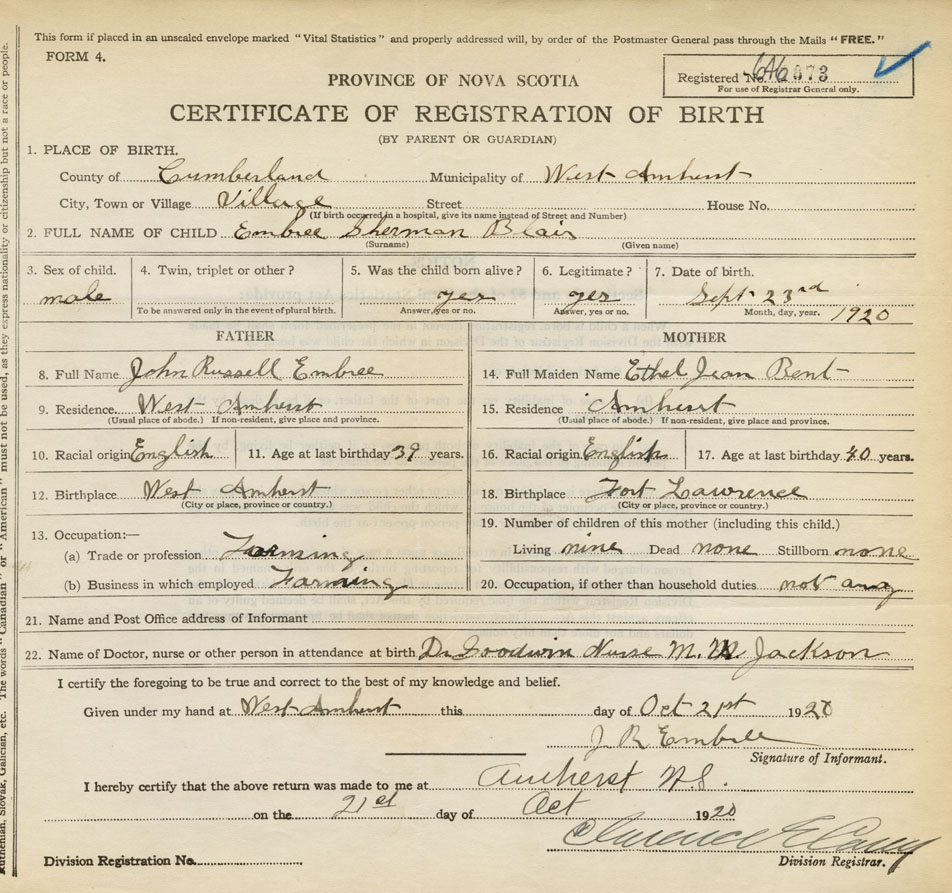 This form if placed in an unsealed envelope marked "Vital Statistics" and properly addressed will, by order of the Postmaster General pass through the Mails "FREE."
FORM 4.
Registered No. 073
For use of Registrar General only.
PROVINCE OF NOVA SCOTIA
CERTIFICATE OF REGISTRATION OF BIRTH
(BY PARENT OR GUARDIAN)
1. PLACE OF BIRTH.
County of Cumberland Municipality of West Amherst
City, Town or Village Village Street House No.
(If birth occurred in a hospital, give its name instead of Street and Number)
2. FULL NAME OF CHILD Embree Sherman Blair
(Surname) (Given name)
3. Sex of child. 4. Twin, triplet or other? 5. Was the child born alive? 6. Legitimate? 7. Date of birth.
male yes yes Sept 23rd 1920
To be answered only in the event of plural birth. Answer, yes or no. Answer, yes or no. Month, day, year.
FATHER
8. Full Name John Russell Embree
9. Residence. West Amherst
(Usual place of abode.) If non-resident, give place and province.
10. Racial origin English 11. Age at last birthday 39 years.
12. Birthplace West Amherst
(City or place, province or country.)
13. Occupation:—
(a) Trade or profession Farming
(b) Business in which employed Farming
MOTHER
14. Full Maiden Name Ethel Jean Bent
15. Residence Amherst
(Usual place of abode.) If non-resident, give place and province.
16. Racial origin English 17. Age at last birthday 40 years.
18. Birthplace Fort Lawrence
(City or place, province or country.)
19. Number of children of this mother (including this child.)
Living nine Dead none Stillborn none
20. Occupation, if other than household duties not any
21. Name and Post Office address of Informant
22. Name of Doctor, nurse or other person in attendance at birth Dr Goodwin Nurse M. Jackson
I certify the foregoing to be true and correct to the best of my knowledge and belief.
Given under my hand at West Amherst this day of Oct 21st 1920
J R Embree
Signature of Informant.
I hereby certify that the above return was made to me at Amherst N.S.
on the 21st day of Oct 1920
Clarence E
Division Registration No. Division Registrar.
Ruthenian, Slovak, Galician, etc. The words "Canadian" or "American" must not be used, as they express nationality or citizenship but not a race or people.